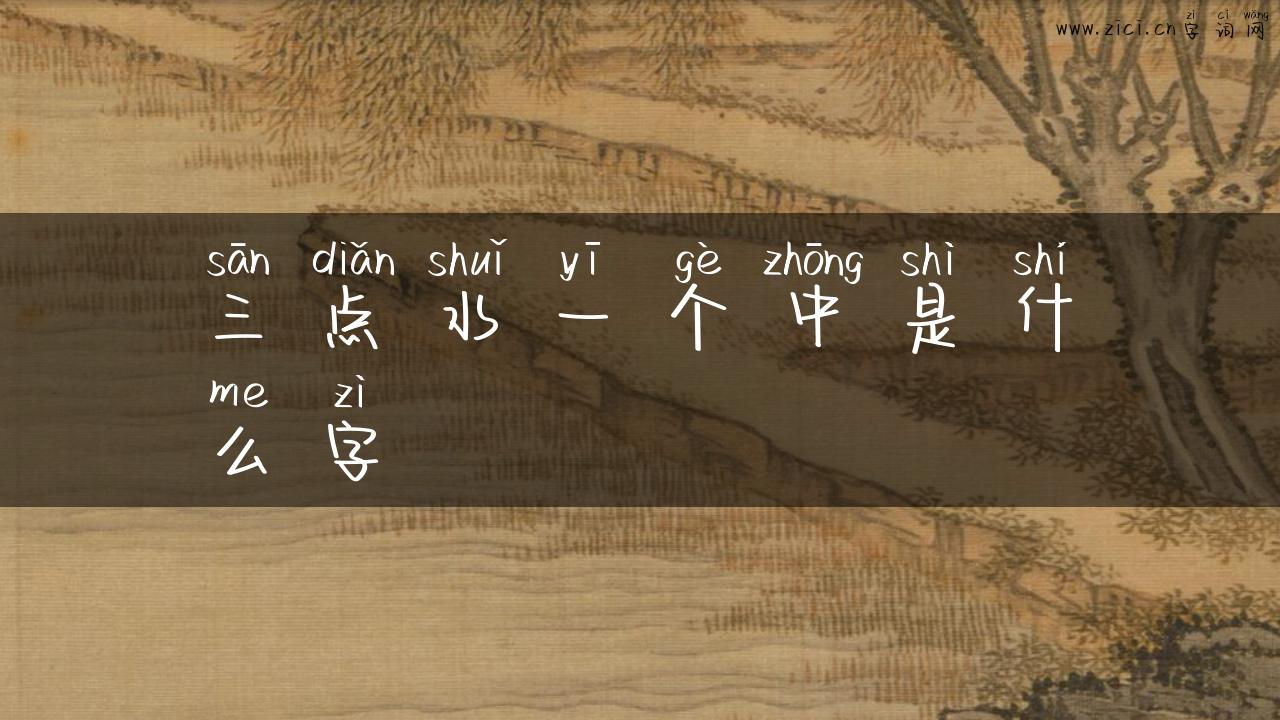 zì cí wǎng
www.zici.cn字词网
sān diǎn shuǐ yī gè zhōng shì shí
三点水一个中是什
me zì
么字